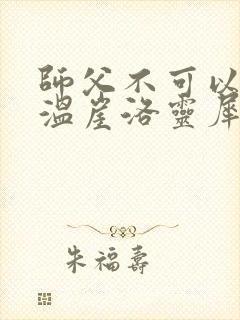 師父不可以
溫崖洛靈犀
朱福壽